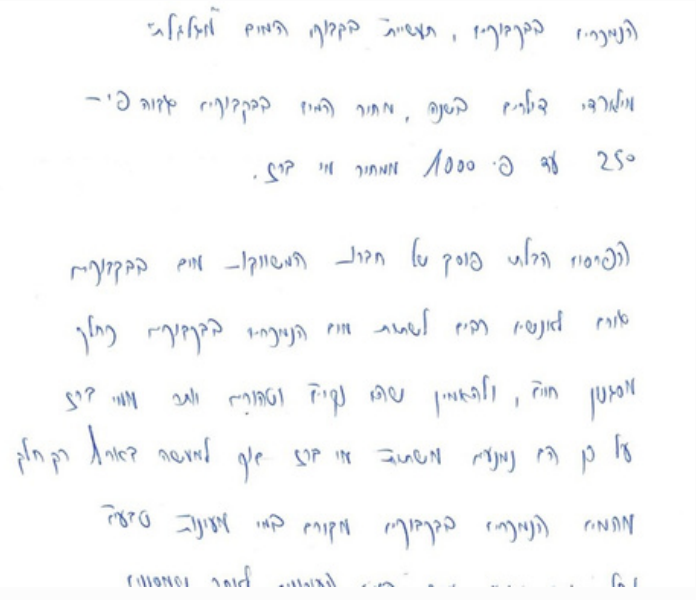 הנמכרים בבקבוקים, תעשיית בקבוקי המים מגלגלת
מיליארדי דולרים בשנה, מחיר המים בבקבוקים גבוה פי -
250 עד פי 1000 ממחיר מי ברז.
הפרסום הבלתי פוסק של חברות המשווקות מים בבקבוקים
גורם לאנשים רבים לשתות מים הנמכרים בבקבוקים כחלק
מסגנון חיים, ולהאמין שהם נקיים וטהורים יותר ממי ברז
על כן הם נמנעים משתיית מי ברז אף למעשה רק חלק
מהמים הנמכרים בבקבוקים מקורם במי מעינות טבעיים